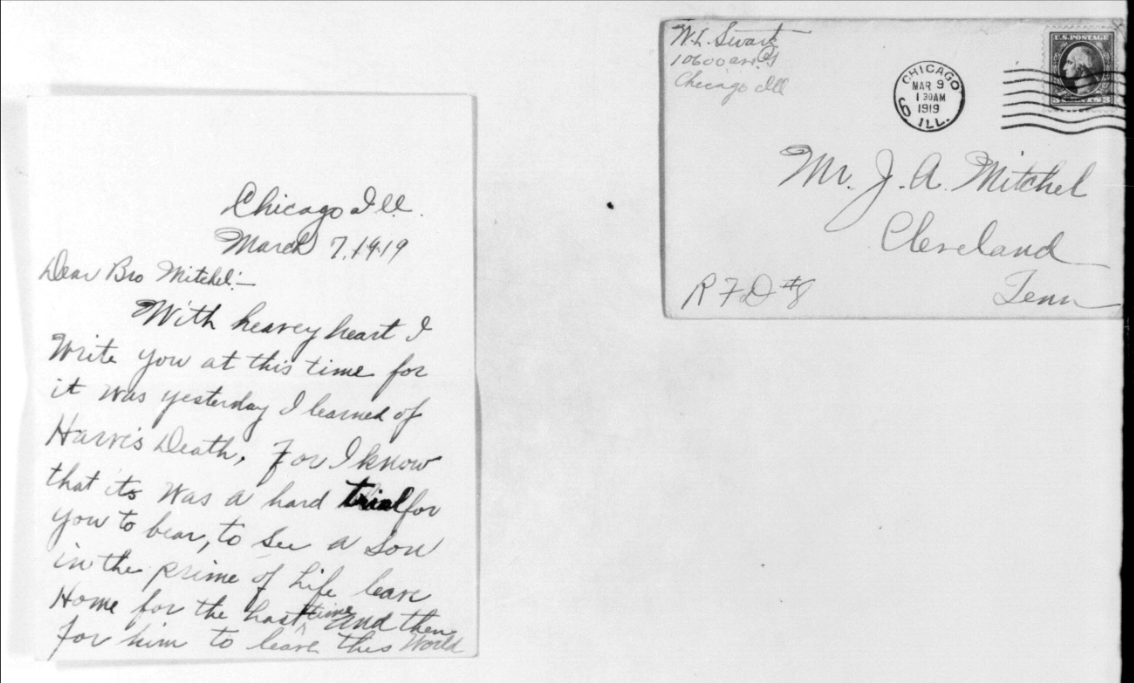 Chicago Ill.
March 7, 1919
Dear Bro Mitchel:—
With heavey heart I
Write you at this time for
it was yesterday I learned of
Death, For I know
that its was a hard trial for
you to bear, to see a son
in the prime of Life leave
Home for the Last time and then
for him to leave this World
W. L. Swart
10600
Chicago Ill
CHICAGO
MAR 9
1 30AM
1919
ILL.
U.S. POSTAGE
Mr. J. A. Mitchel
Cleveland
Tenn
R F D #8